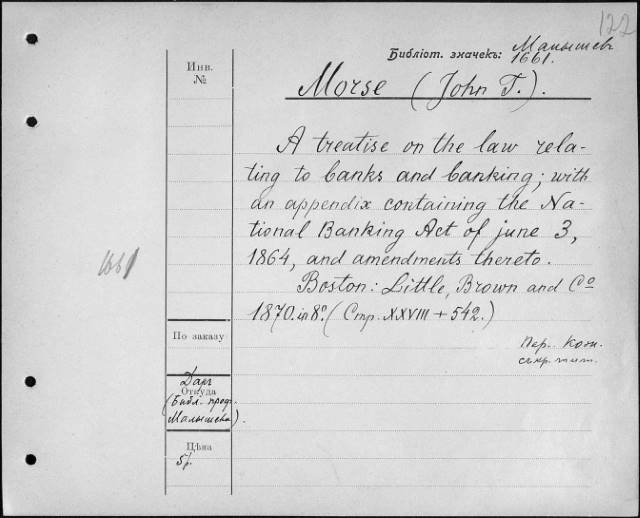 122
Библіот. значекъ: Малышев
1661.
Инв.
№
Morse (John T.).
A treatise on the law rela-
ting to banks and banking; with
an appendix containing the Na-
tional Banking Act of june 3,
1864, and amendments thereto.
1661
Boston: Little, Brown and Cº
1870. in 8º. (Стр. XXVIII + 542.)
По заказу
Пер. кож.
съ кр. тит.
Даръ
Откуда
(Библ. проф.
Малышева).
Цѣна
5 р.